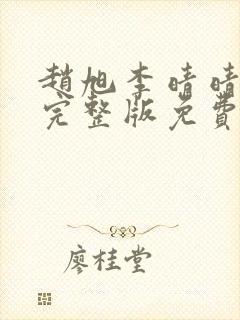 趙旭李晴晴
完整版免費
廖桂堂